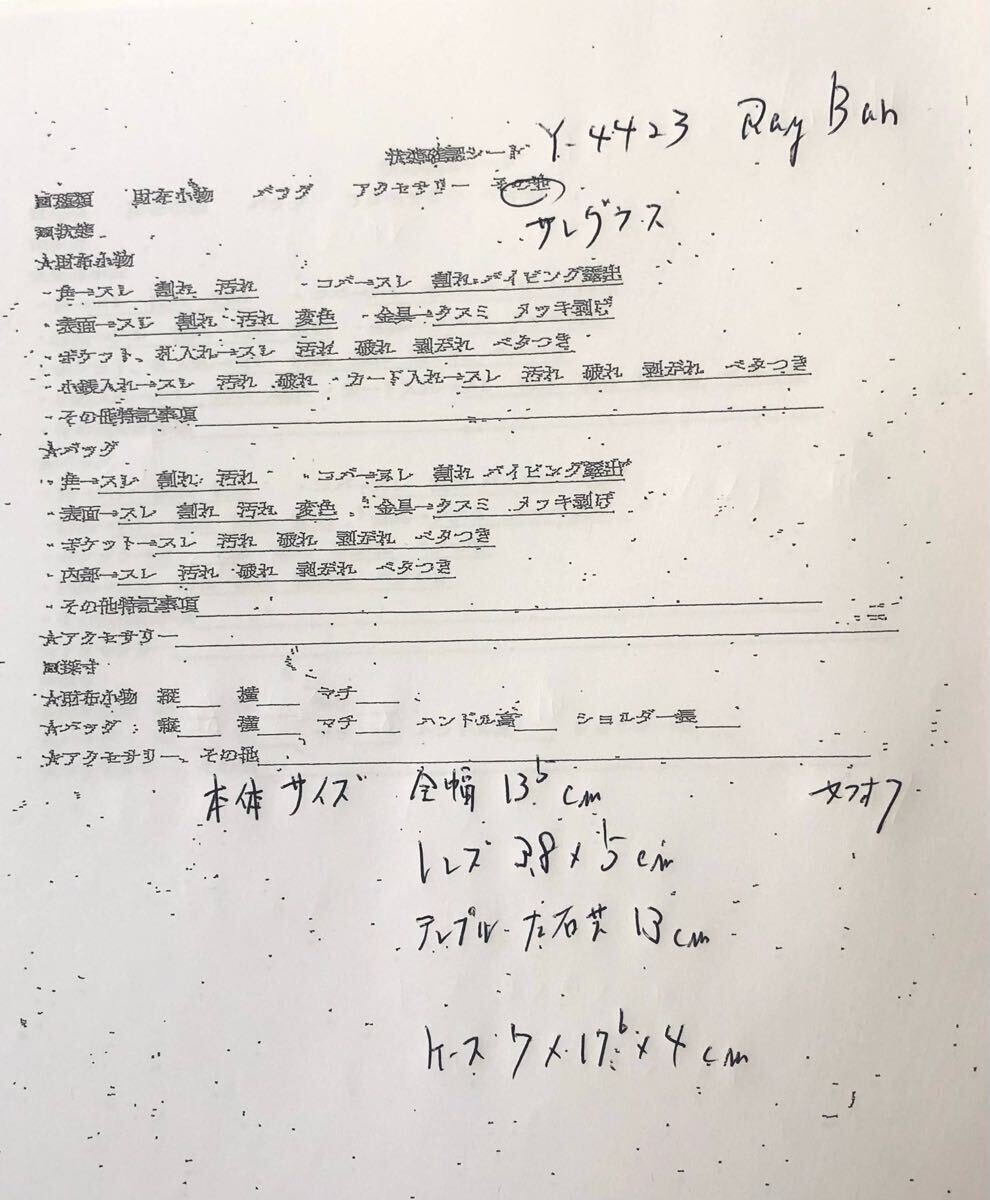 状態確認シート Y-4423 Ray Ban
□種類 財布小物 バッグ アクセサリー その他
サングラス
□状態
★財布小物
・角→スレ 割れ 汚れ ・コバ→スレ 割れ パイピング露出
・表面→スレ 割れ 汚れ 変色 ・金具→クスミ メッキ剥げ
・ポケット、札入れ→スレ 汚れ 破れ 剥がれ ベタつき
・小銭入れ→スレ 汚れ 破れ ・カード入れ→スレ 汚れ 破れ 剥がれ ベタつき
・その他特記事項
★バッグ
・角→スレ 割れ 汚れ ・コバ→スレ 割れ パイピング露出
・表面→スレ 割れ 汚れ 変色 ・金具→クスミ メッキ剥げ
・ポケット→スレ 汚れ 破れ 剥がれ ベタつき
・内部→スレ 汚れ 破れ 剥がれ ベタつき
・その他特記事項
★アクセサリー
□採寸
★財布小物 縦 横 マチ
★バッグ:縦 横 マチ ハンドル高 ショルダー長
★アクセサリー、その他
本体サイズ 全幅 13.5 cm
レンズ 3.8 × 5 cm
テンプル 左右共 13 cm
ケース 7 × 17.5 × 4 cm